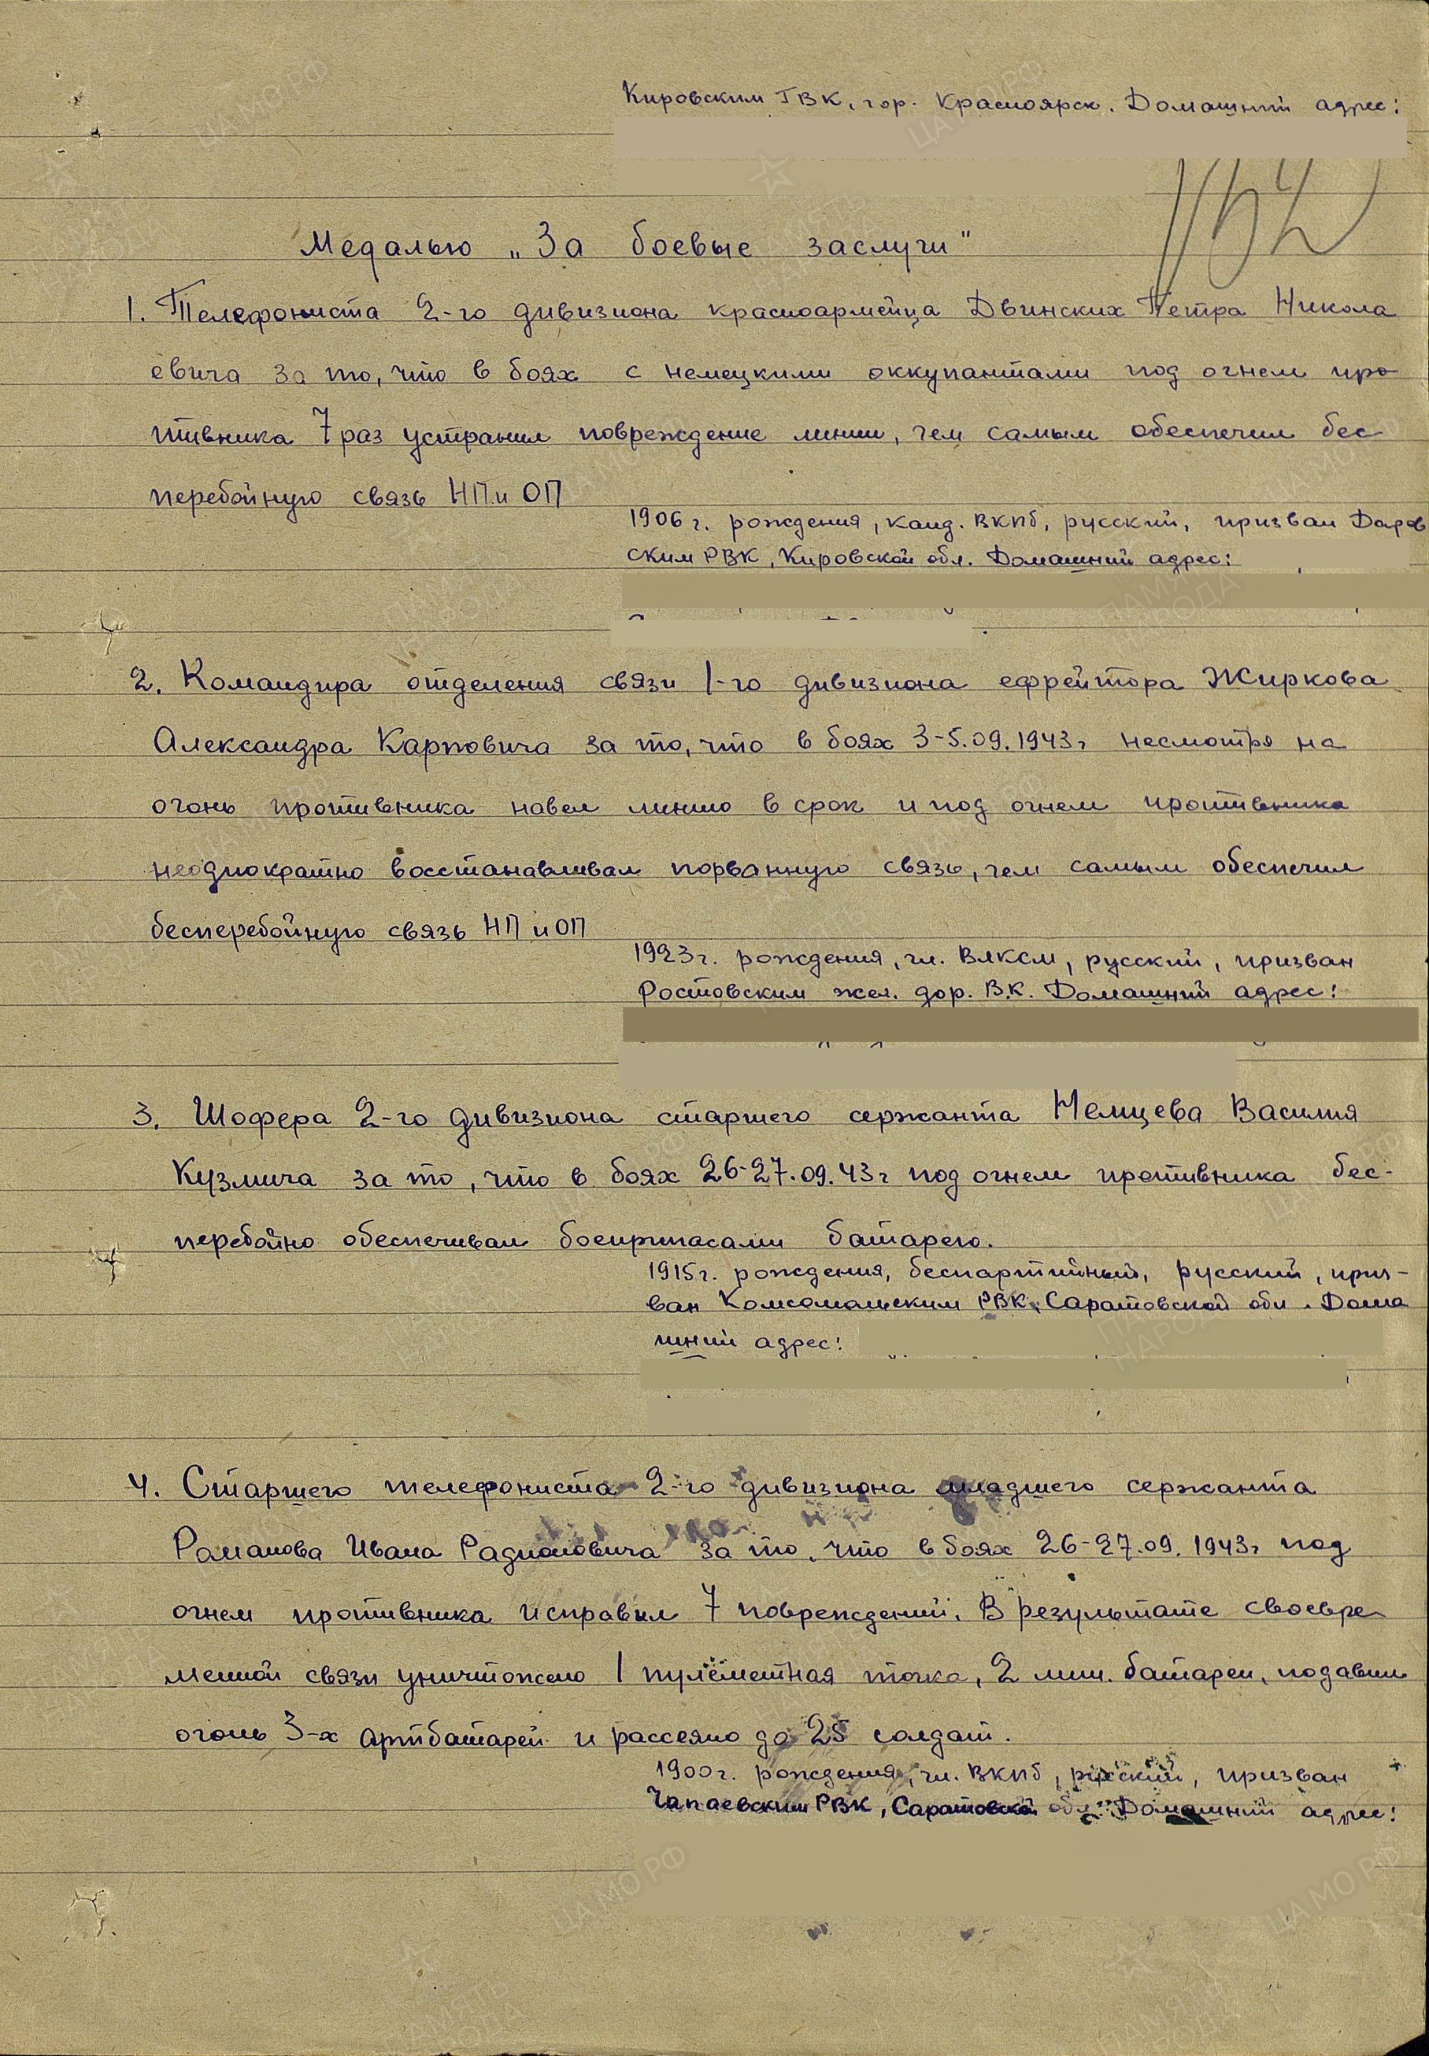 Кировским ГВК, гор. Красноярск. Домашний адрес:
Медалью „За боевые заслуги"
1. Телефониста 2-го дивизиона красноармейца Двинских Петра Никола
евича за то, что в боях с немецкими оккупантами под огнем про
тивника 7 раз устранил повреждение линии, чем самым обеспечил бес-
перебойную связь НП и ОП
1906 г. рождения, канд. ВКПб, русский, призван Даров
ским РВК, Кировской обл. Домашний адрес:
2. Командира отделения связи 1-го дивизиона ефрейтора Жиркова
Александра Карповича за то, что в боях 3-5.09.1943г несмотря на
огонь противника навел линию в срок и под огнем противника
неоднократно восстанавливал порванную связь, чем самым обеспечил
бесперебойную связь НП и ОП
1923г. рождения, чл. ВЛКСМ, русский, призван
Ростовским жел. дор. В.К. Домашний адрес:
3. Шофера 2-го дивизиона старшего сержанта Немцева Василия
Кузмича за то, что в боях 26-27.09.43г под огнем противника бес-
перебойно обеспечивал боеприпасами батарею.
1915г. рождения, беспартийный, русский, приз-
ван Комсомольским РВК, Саратовской обл. Дома
шний адрес:
4. Старшего телефониста 2-го дивизиона младшего сержанта
Романова Ивана Радионовича за то, что в боях 26-27.09.1943г под
огнем противника исправил 7 повреждений. В результате своевре-
менной связи уничтожено 1 пулеметная точка, 2 мин. батареи, подавил
огонь 3-х артбатарей и рассеяно до 25 солдат.
1900г. рождения, чл. ВКПб, русский, призван
Чапаевским РВК, Саратовской обл. Домашний адрес: